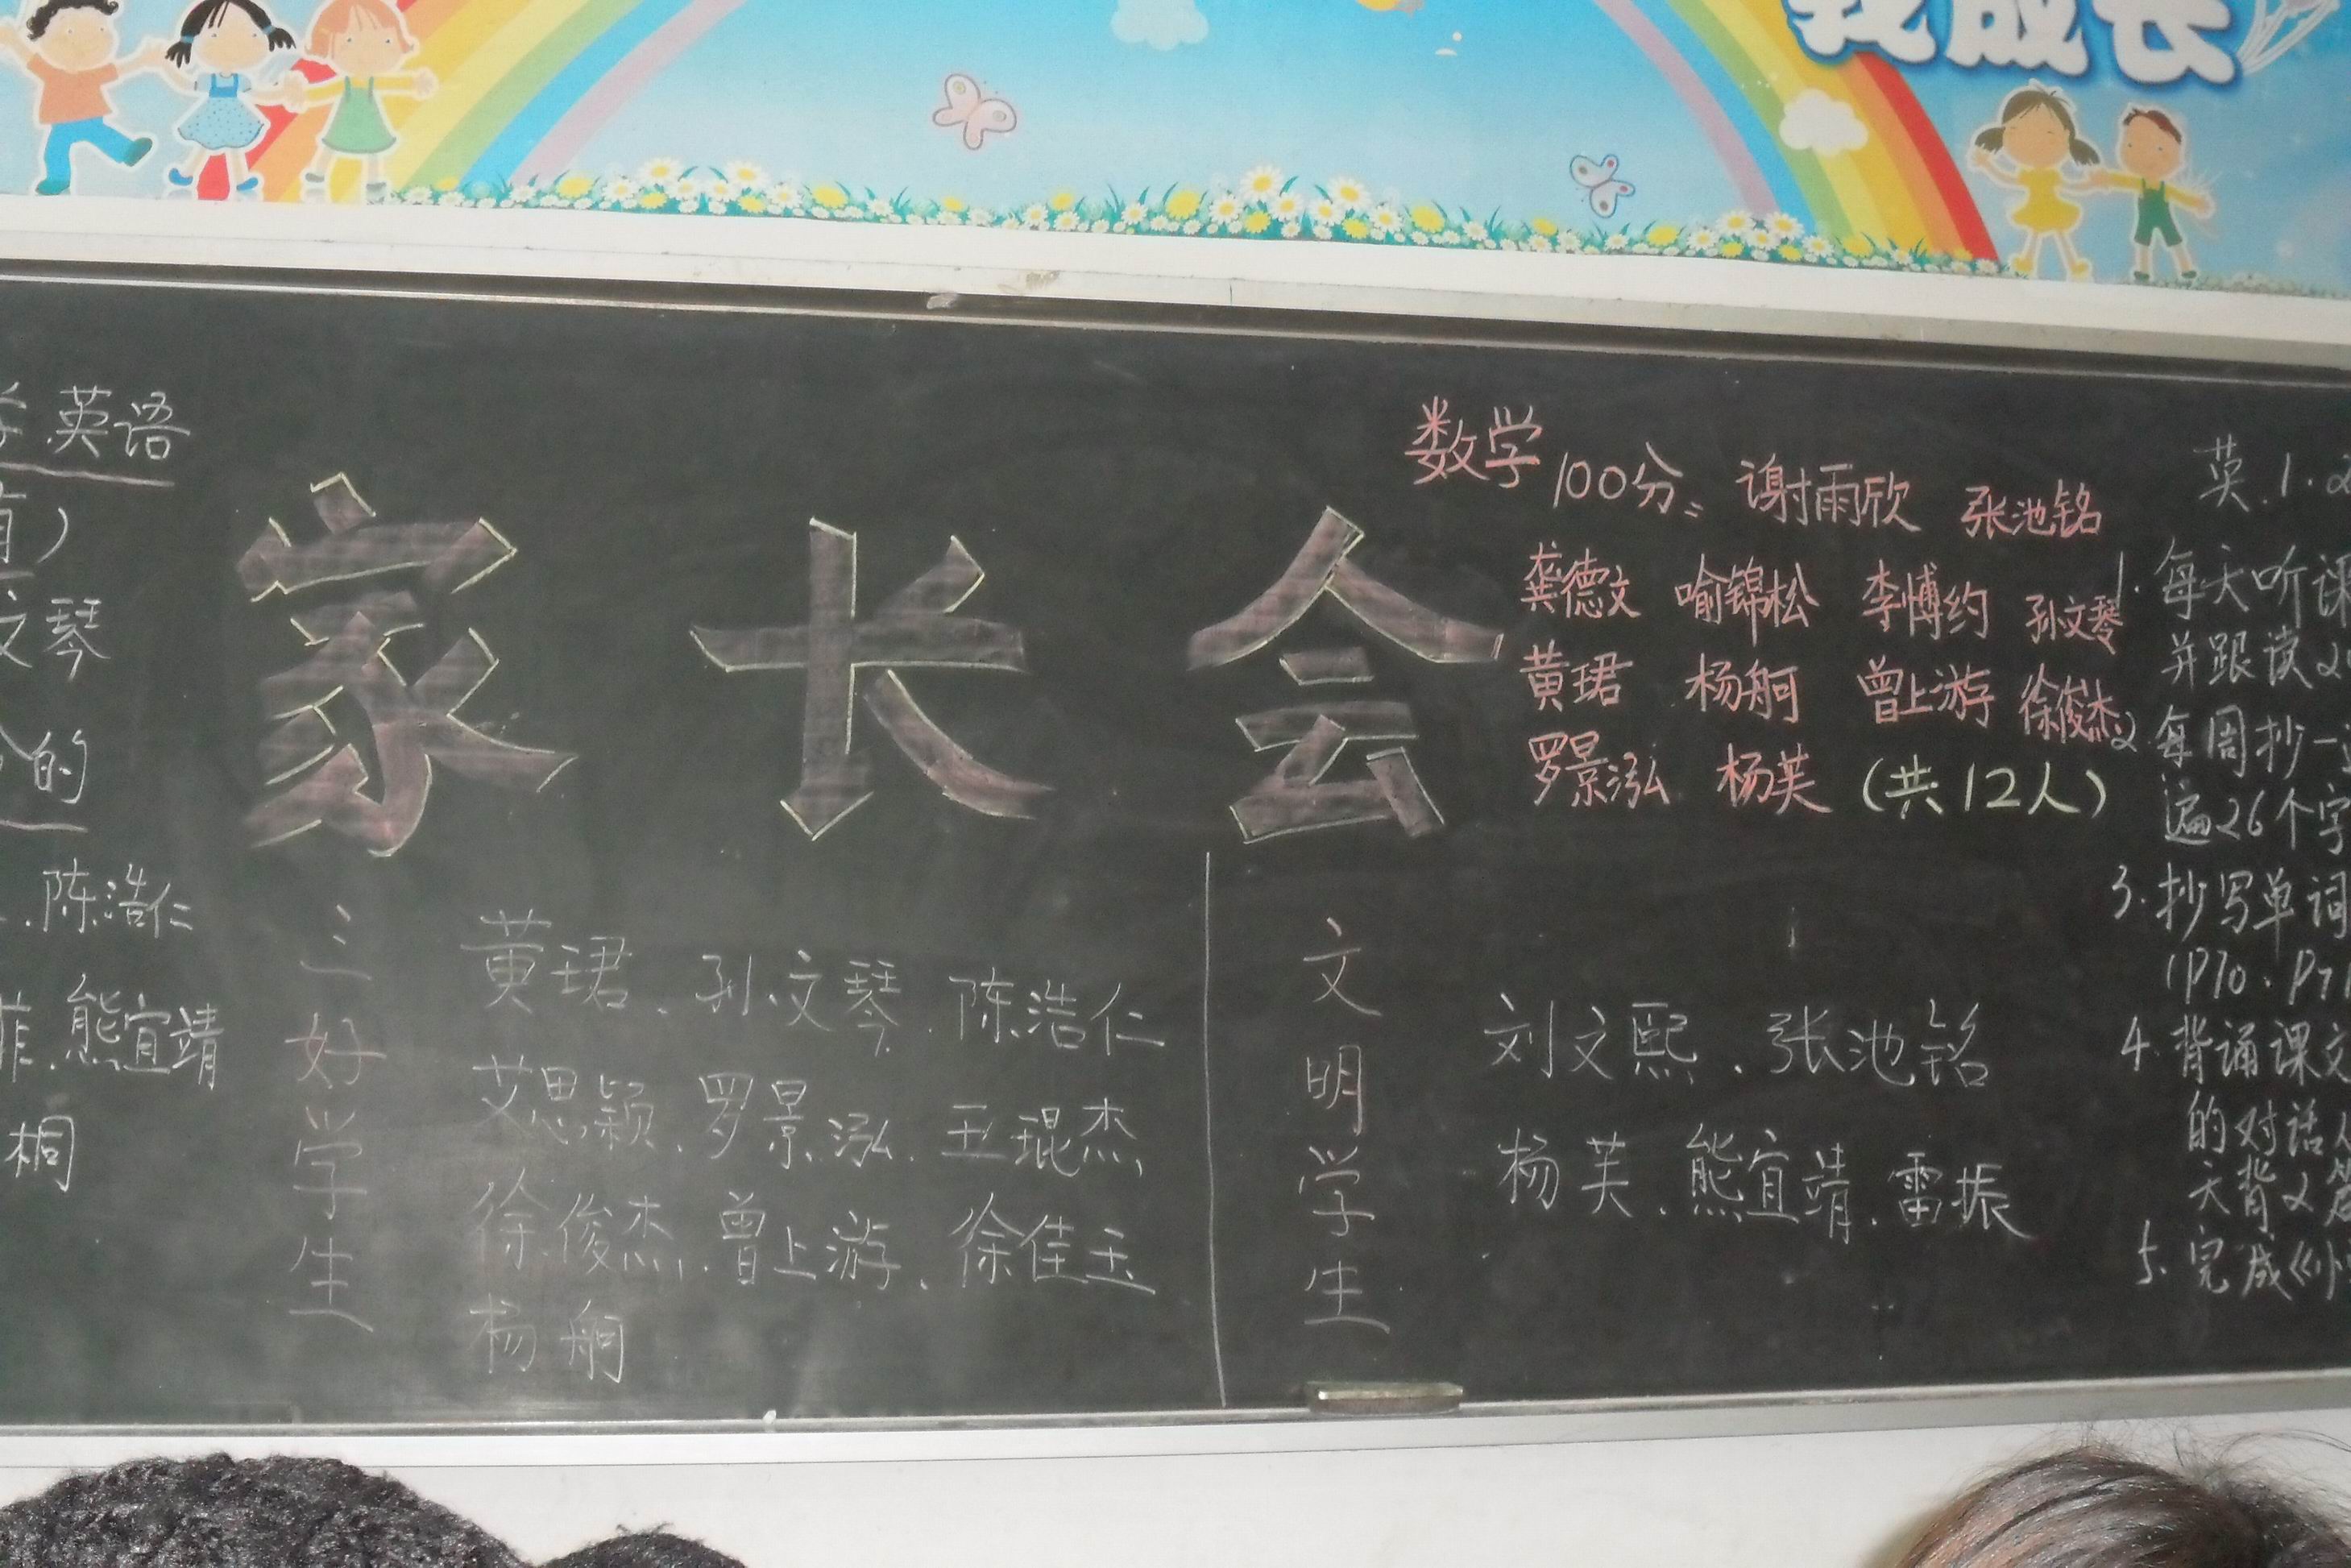 我成长
英语
文琴
的
陈浩仁
熊宜靖
桐
家长会
数学 100分: 谢雨欣 张池铭
龚德文 喻锦松 李博约 孙文琴
黄珺 杨舸 曾上游 徐俊杰
罗景泓 杨芙 (共12人)
三好学生
黄珺、孙文琴、陈浩仁
艾思颖、罗景泓、王琨杰
徐俊杰、曾上游、徐佳玉
杨舸
文明学生
刘文熙、张池铭
杨芙、熊宜靖、雷振
英.1.2
1. 每天听课
并跟读2
2 每周抄一
遍26个字
3. 抄写单词
(P70、P71
4. 背诵课文
的对话
天背2篇
5. 完成《小